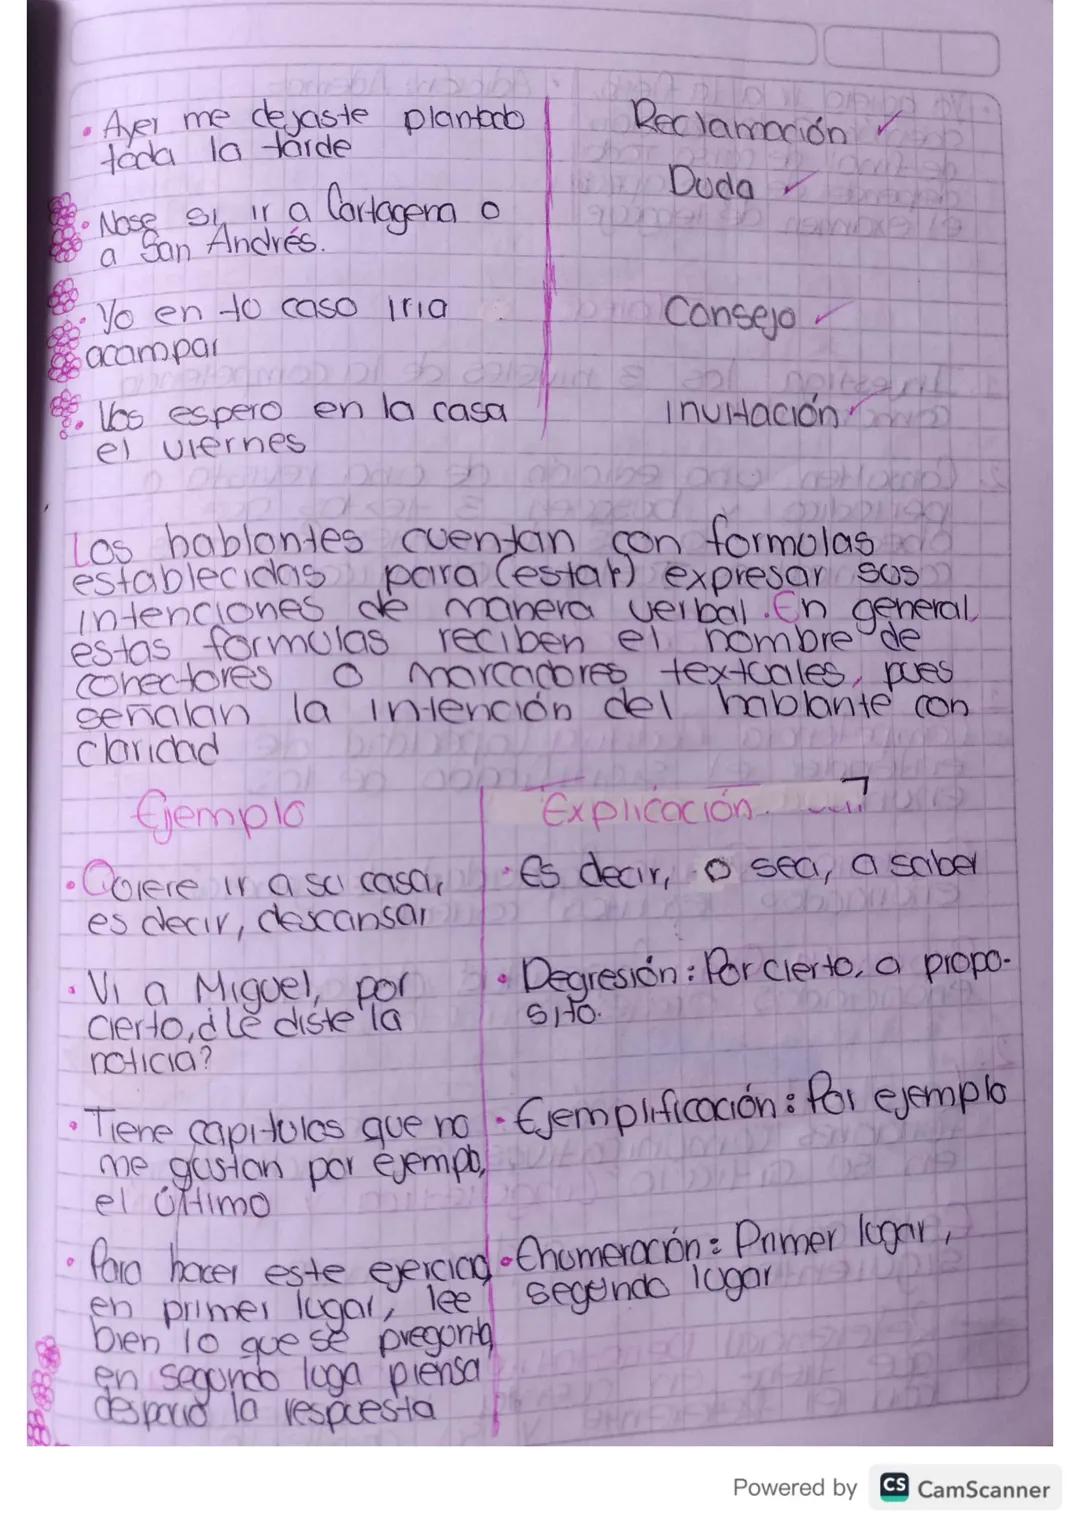 • Ayer me dejaste plantado
toda la tarde
Reclamación ✓
Duda ✓
• Nose si ir a Cartagena o
a San Andrés.
• Yo en to caso iria
acampar
Consejo ✓
• Vos espero en la casa
el viernes
invitación ✓
Los hablantes cuentan con formulas
establecidas para (estar) expresar sus
intenciones de manera verbal. En general,
estas formulas reciben el nombre de
conectores o marcadores textuales, pues
señalan la intención del hablante con
claridad
Ejemplo
Explicación
• Quiere ir a su casa,
es decir, descansar
• Es decir, o sea, a saber
• Vi a Miguel, por
cierto, ¿Le diste la
noticia?
• Degresión: Por cierto, a propo-
sito.
• Tiene capitulos que no
me gustan por ejempo,
el último
• Ejemplificación: Por ejemplo
• Para hacer este ejercicio
en primer lugar, lee
bien lo que se pregonta
en segundo luga piensa
despacio la respuesta
• Enumeración: Primer lugar,
segundo lugar
Powered by CS CamScanner